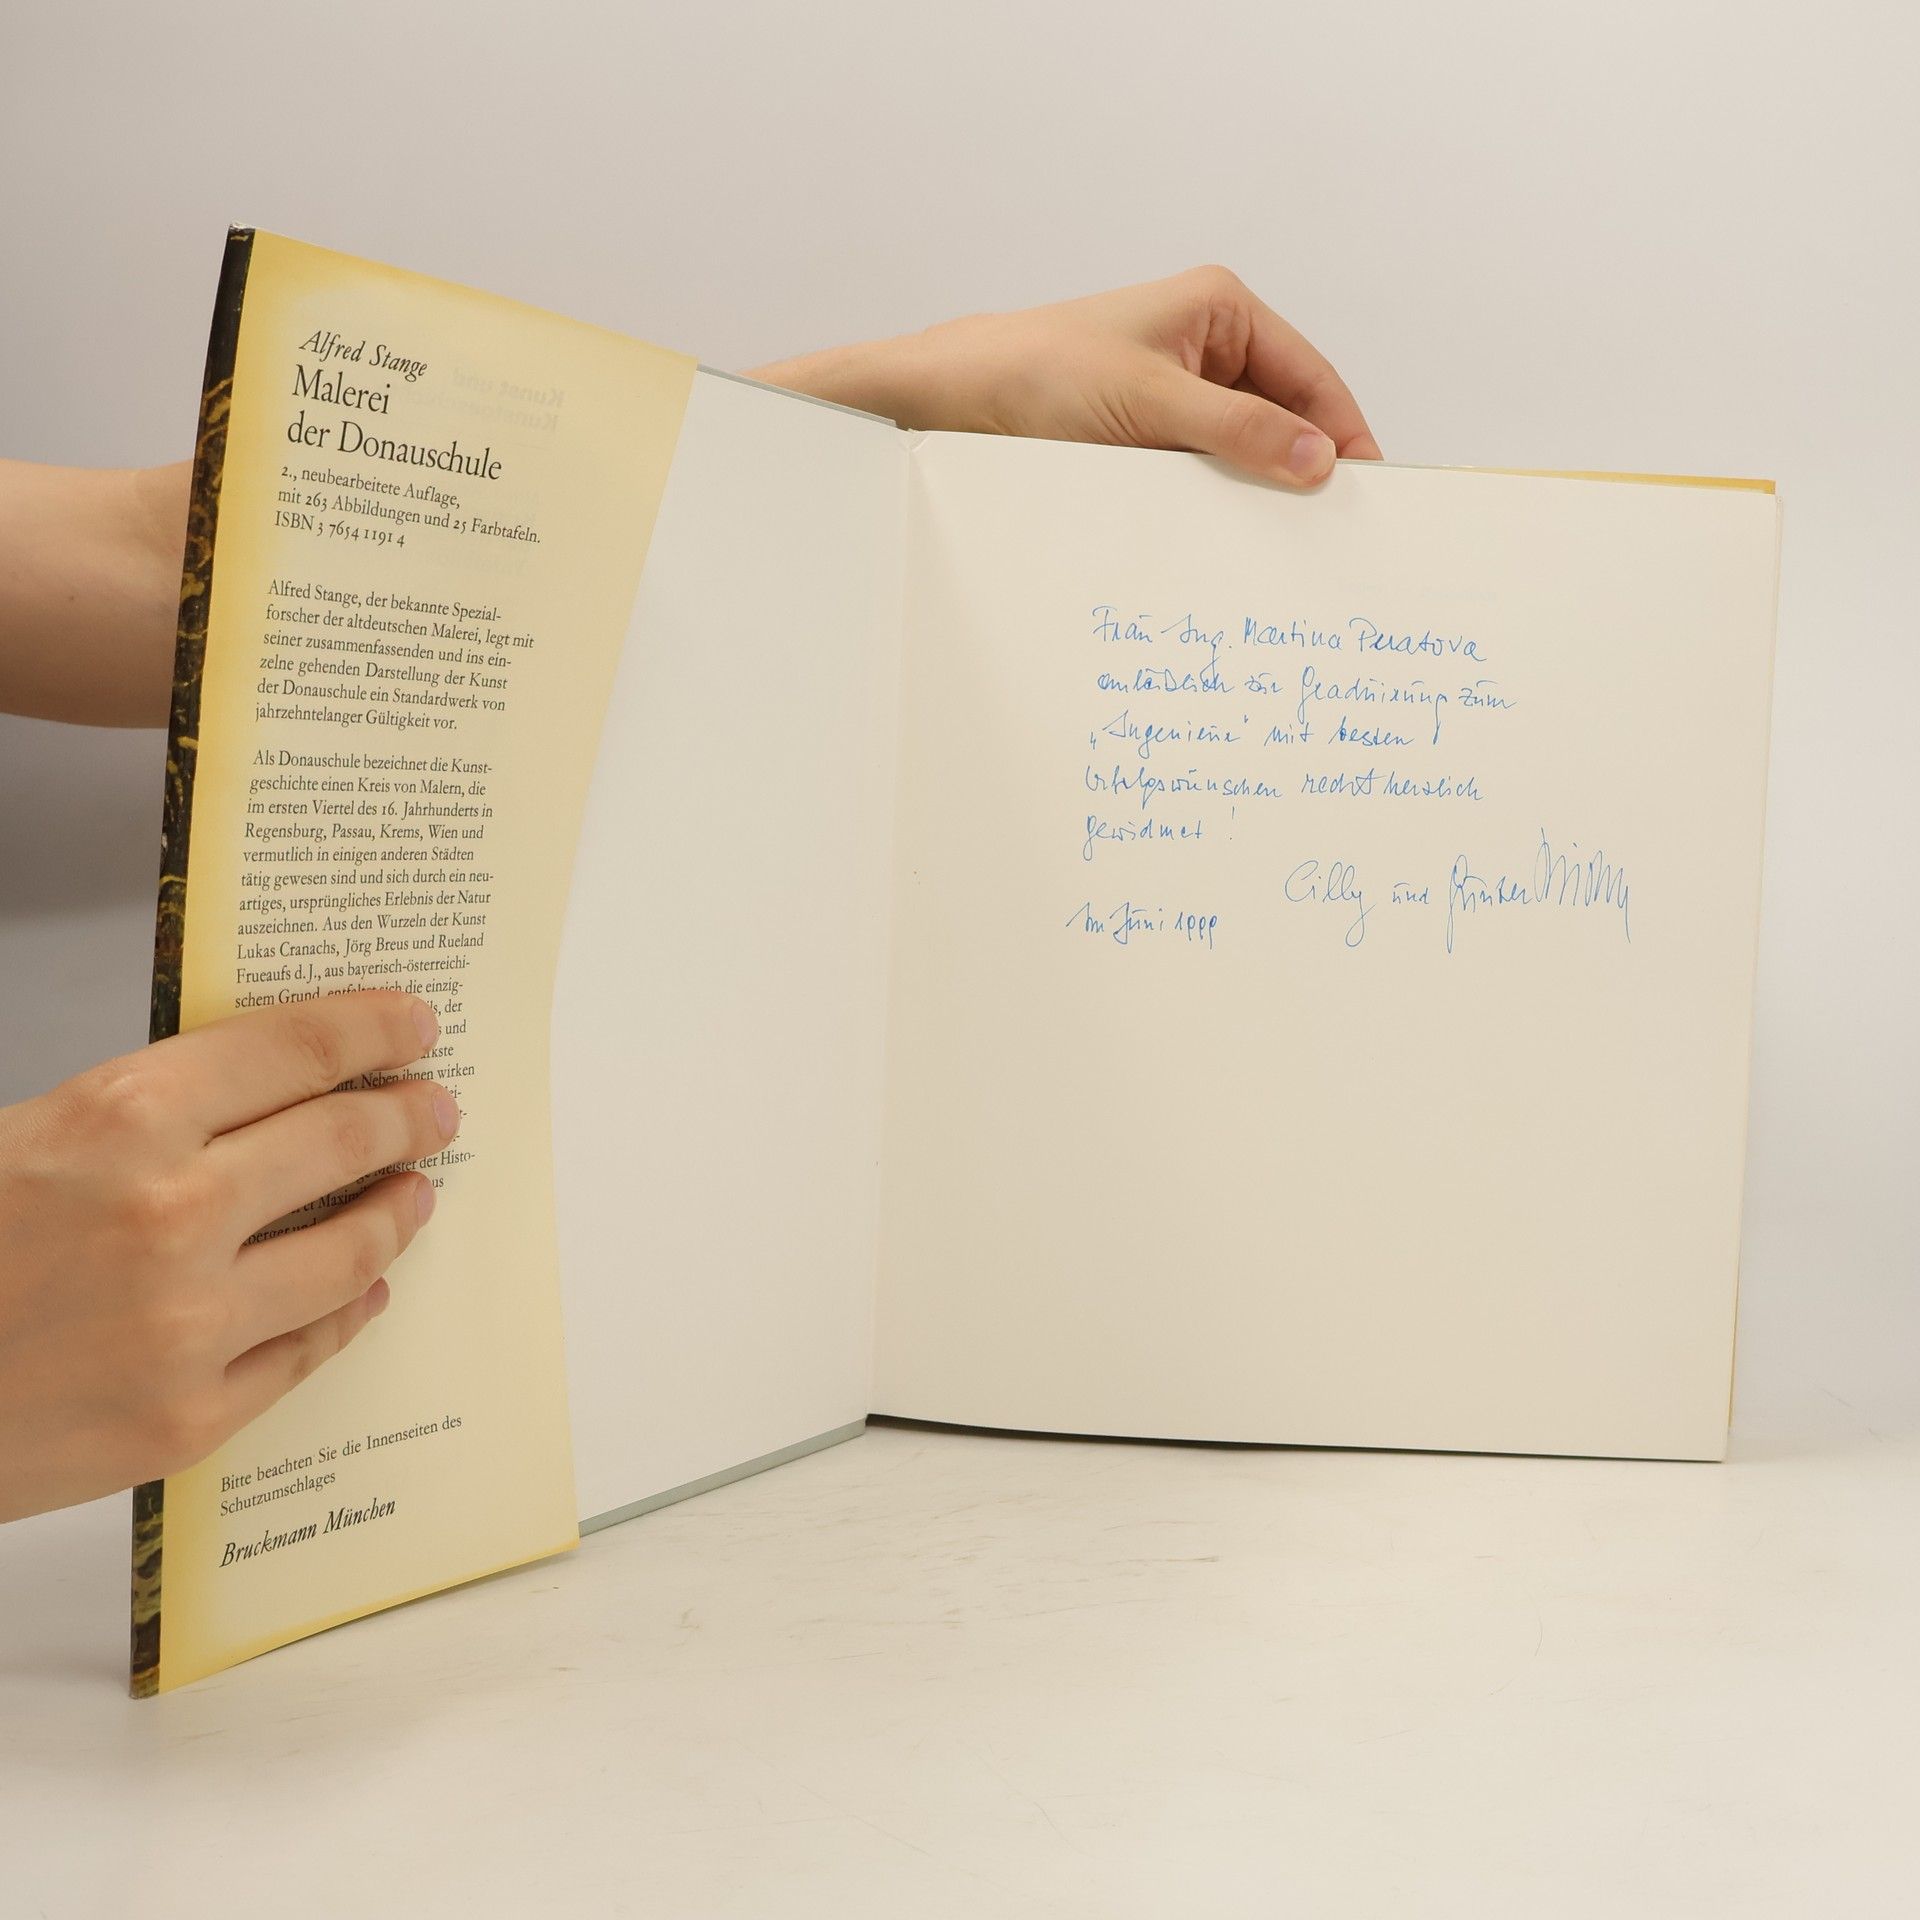 Alfred Stange
Malerei
der Donauschule
2., neubearbeitete Auflage,
mit 263 Abbildungen und 25 Farbtafeln.
ISBN 3 7654 1191 4
Alfred Stange, der bekannte Spezial-
forscher der altdeutschen Malerei, legt mit
seiner zusammenfassenden und ins ein-
zelne gehenden Darstellung der Kunst
der Donauschule ein Standardwerk von
jahrzehntelanger Gültigkeit vor.
Als Donauschule bezeichnet die Kunst-
geschichte einen Kreis von Malern, die
im ersten Viertel des 16. Jahrhunderts in
Regensburg, Passau, Krems, Wien und
vermutlich in einigen anderen Städten
tätig gewesen sind und sich durch ein neu-
artiges, ursprüngliches Erlebnis der Natur
auszeichnen. Aus den Wurzeln der Kunst
Lukas Cranachs, Jörg Breus und Rueland
Frueaufs d. J., aus bayerisch-österreichi-
schem Grund, entfaltet sich die einzig-
der
und
Neben ihnen wirken
Meister der Histo-
Bitte beachten Sie die Innenseiten des
Schutzumschlages
Bruckmann München
Frau Ing. Martina
anläßlich zur Graduierung zum
„Ingenieur" mit besten
Erfolgswünschen recht herzlich
gewidmet!
Cilly und Günter
Im Juni 1999